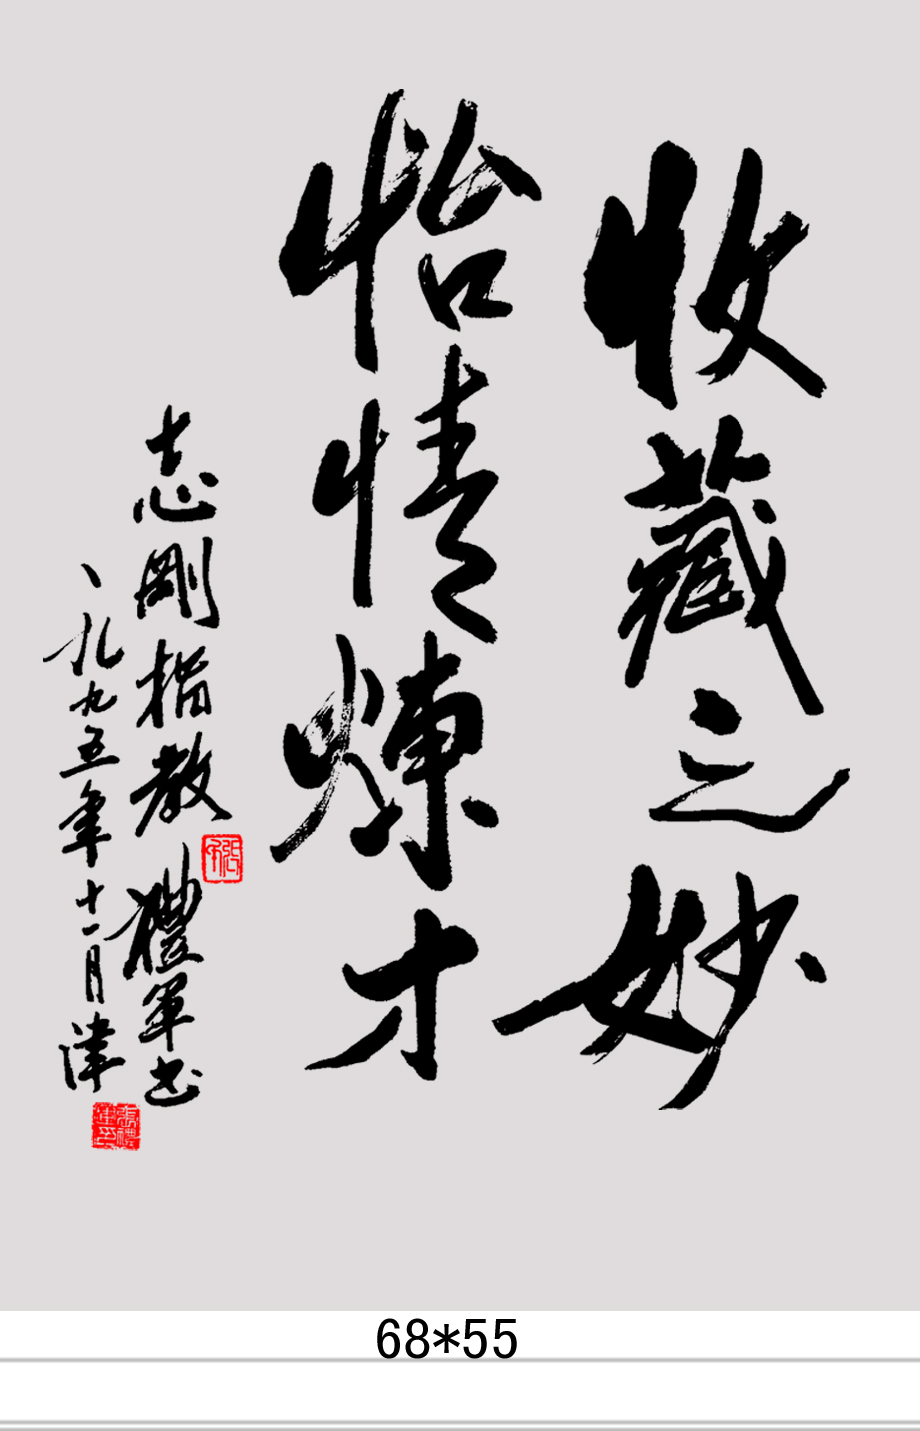 收藏之妙
怡情煉才
志剛指教 禮軍書
一九九五年十一月津
68*55